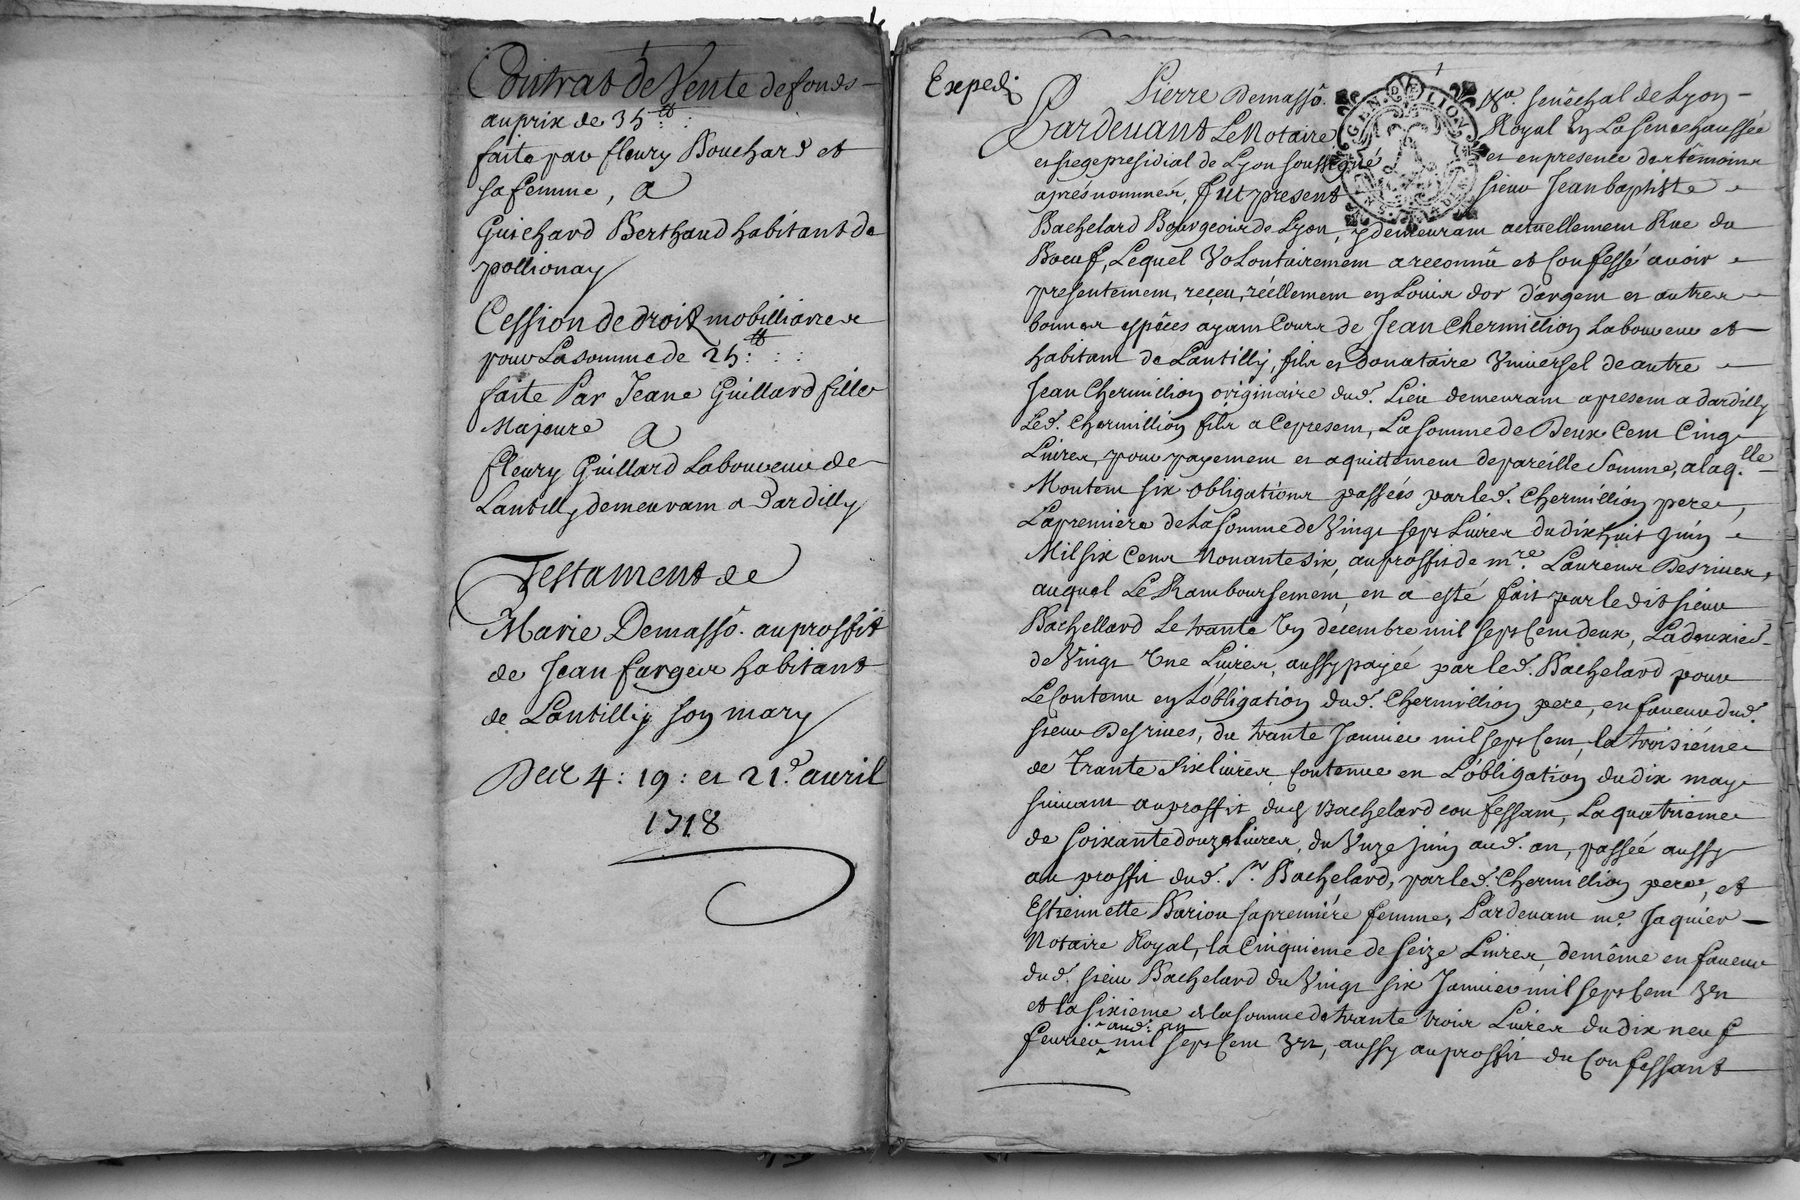 Contrat de Vente de fonds
au prix de 35 tt
faite par fleury Bouchard et
sa femme, A
Guichard Berthaud habitant de
pollionay
Cession de droit mobilliaires
pour La somme de 25 tt
faite Par Jeane Guillard fille
Majeure A
fleury Guillard Laboureur de
Lantilly demeurant a Dardilly
Testament de
Marie Demasso. au proffit
de Jean farges habitant
de Lantilly son mary
Des 4: 19: et 21e avril
1718
Expedi
Pierre Demasso. sénéchal de Lyon
Pardevant Le Notaire Royal En La senechaussée
et siege presidial de Lyon soussigné et en presence des témoins
apres nommés, fut present sieur Jean baptiste
Bachelard Bourgeois de Lyon, y demeurant actuellement Rue du
Boeuf, Lequel Volontairement a reconnû et Confessé avoir
presentement, reçeu, réellement en Louis dor d'argent et autres
bonnes espéces ayant Cours de Jean Chermillion Laboureur et
habitant de Lantilly, fils et donataire Vniversel de autre
Jean Chermillion originaire dud. Lieu demeurant a present a dardilly
Led. Chermillion fils a Ce present, La somme de Deux Cent Cinq
Livres, pour payement et aquittement de pareille Somme, a laq.lle
Montent six obligations passées par led. Chermillion pere,
La premiere de la somme de Vingt sept Livres du dix huit Juin
Mil six Cens Nonante six, au proffit de mre. Laurens Desrives,
auquel Le Ramboursement en a esté fait par le dit sieur
Bachellard Le trante Un décembre mil sept Cent deux, La deuxie.
de Vingt Une Livres, aussy payée par led. Bachelard pour
Le Contenu en L'obligation dud. Chermillion pere, en faveur dud.
sieur Desrives, du trante Janvier mil sept Cent, la troisiéme
de trante six livres Contenue en L'obligation du dix may
suivant au proffit dud Bachelard confessant, La quatrieme
de soixante douze livres, du Unze juin aud. an, passée aussy
au proffit dud. Sr. Bachelard, par led. Chermillion pere, et
Estiennette Barion sa premiére femme, Pardevant me. Jaquier
Notaire Royal, la Cinquieme de seize Livres, de même en faveur
dud. sieur Bachelard du Vingt six Janvier mil sept Cent Un
et la sixieme de la somme de trante trois Livres du dix neuf
aud. an
fevrier mil sept Cent Un, aussy au proffit du Confessant